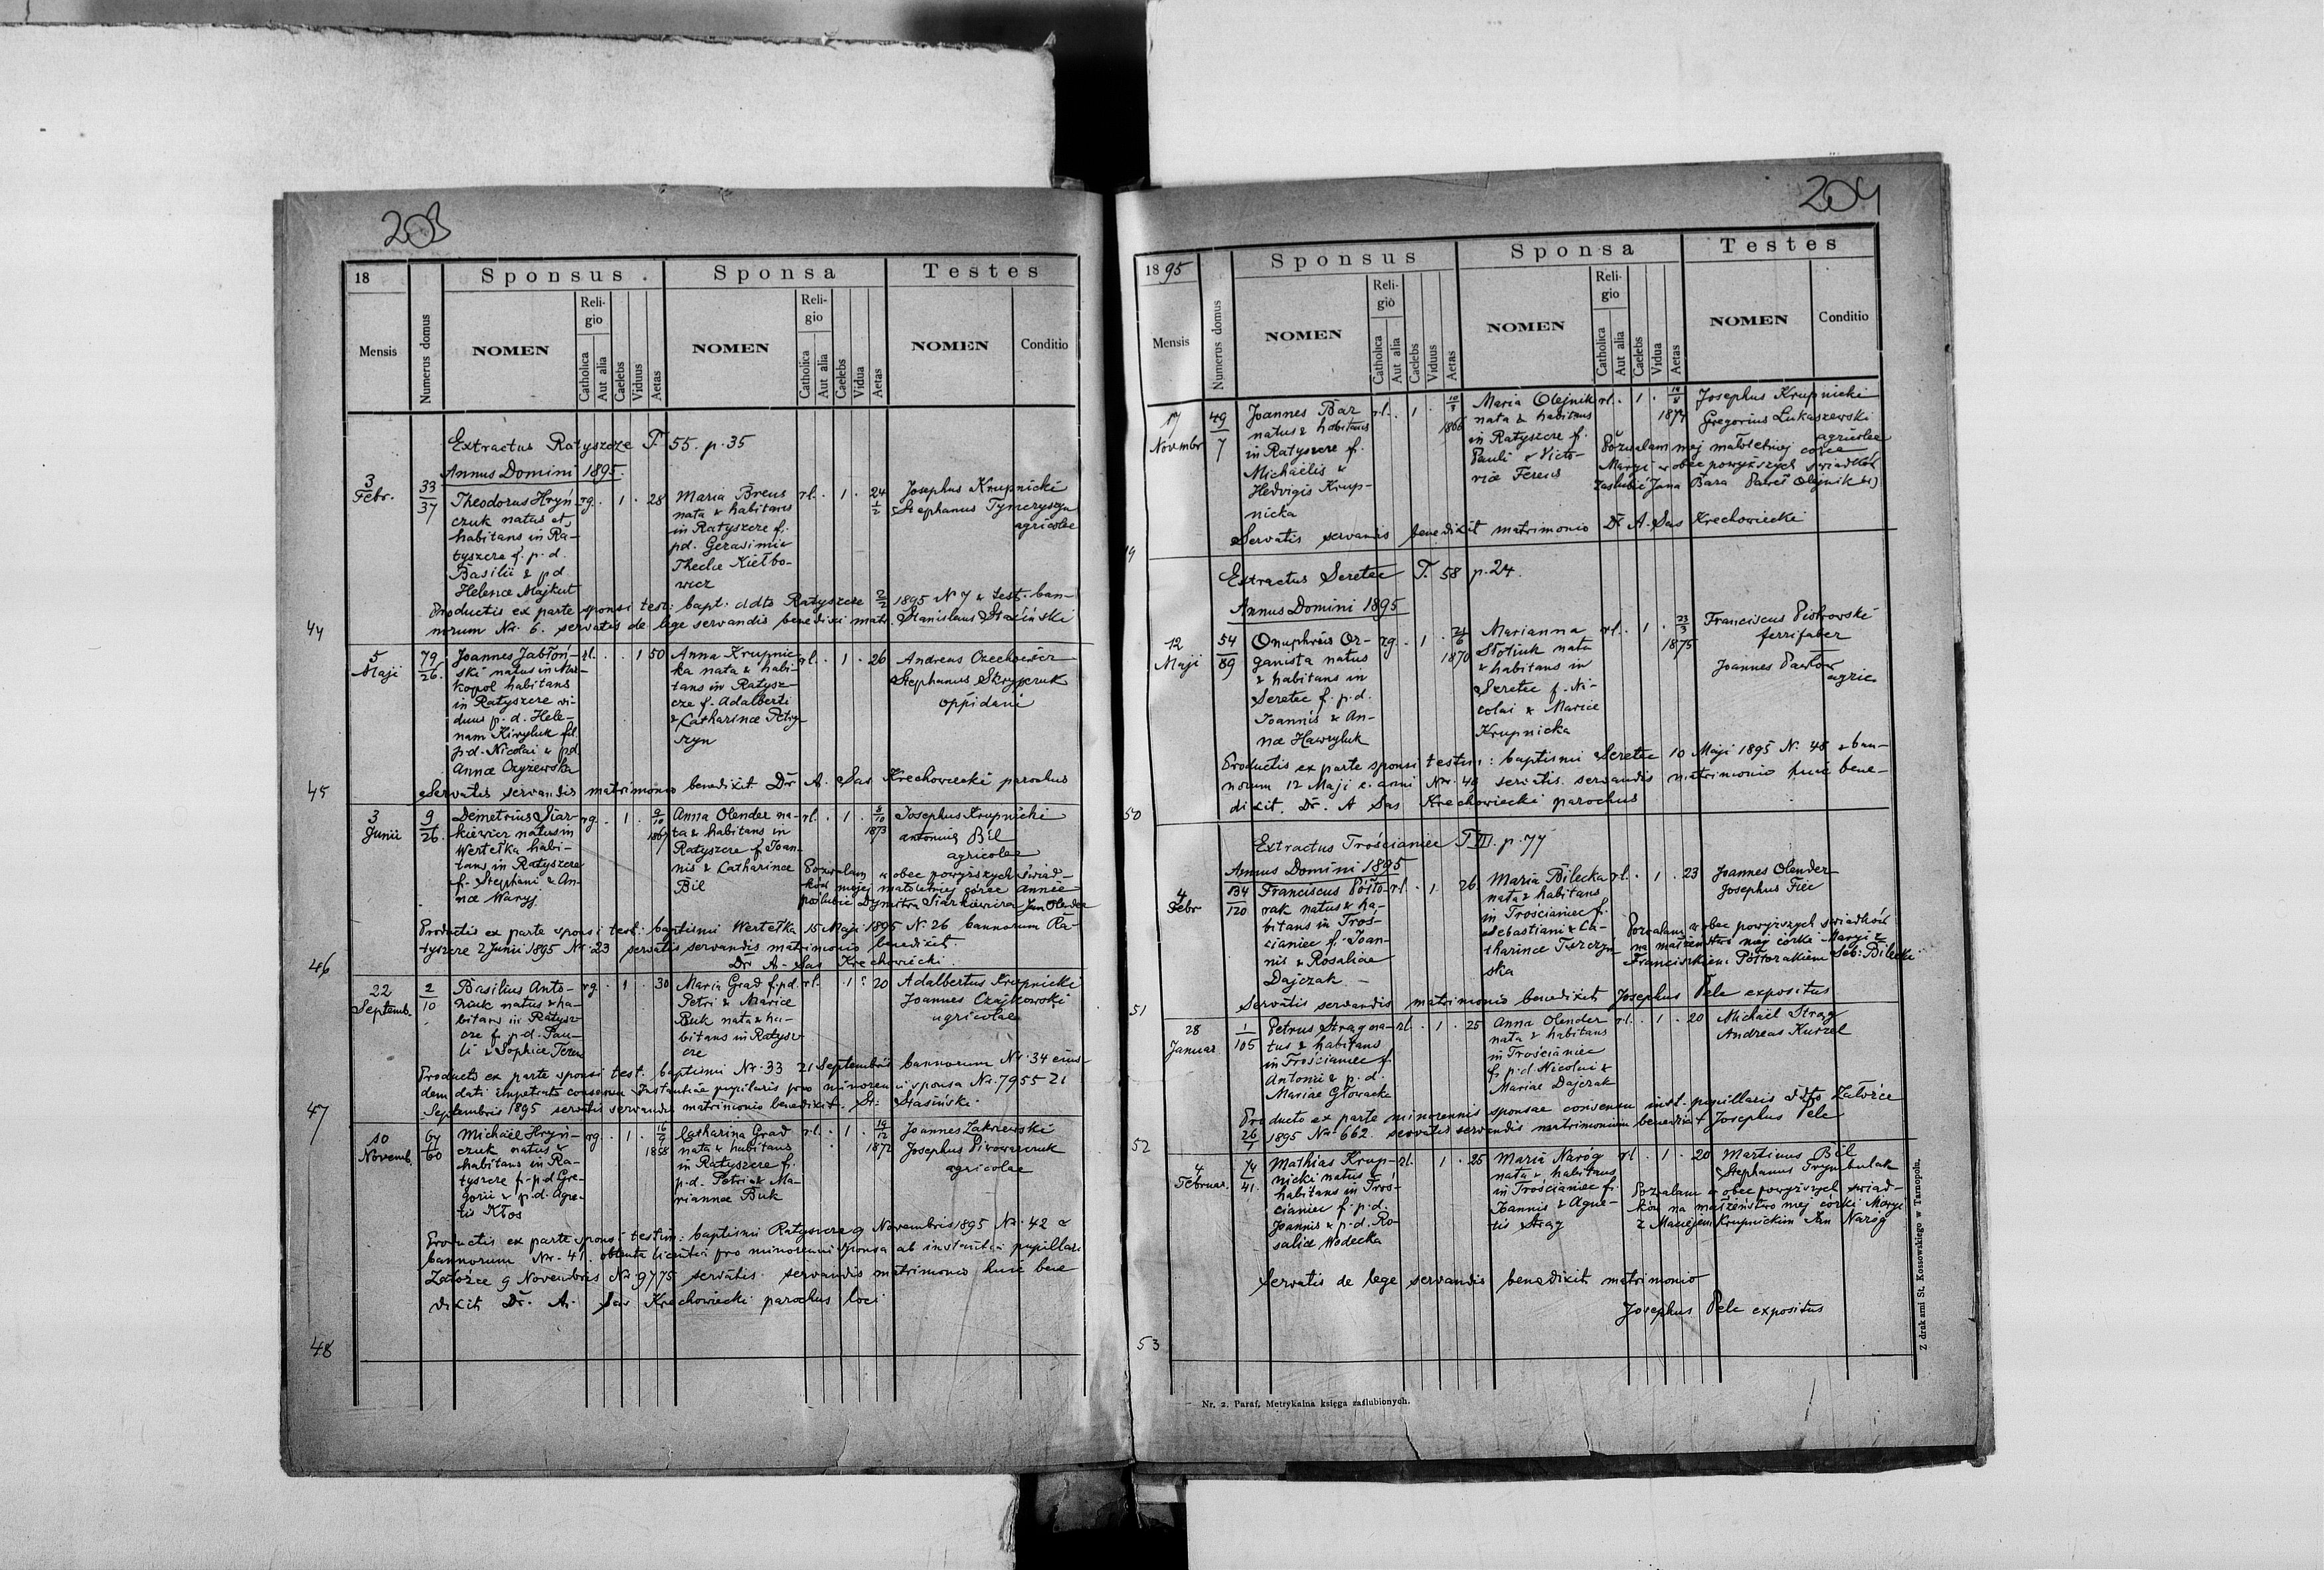 203
18
Sponsus
Sponsa
Testes
Mensis
Numerus domus
NOMEN
Religio
Catholica
Aut alia
Caelebs
Viduus
Aetas
NOMEN
Religio
Catholica
Aut alia
Caelebs
Vidua
Aetas
NOMEN
Conditio
Extractus Ratyszcze T. 55. p. 35
Annus Domini 1895.
3 Febr.
33/37
Theodorus Hryń-
czuk natus et
habitans in Ra-
tyszcze f. p. d.
Basilii & pd
Helenae Majkut
rg. 1 . 28
Maria Breus
nata & habitans
in Ratyszcze f.
pd. Gerasimie
Theclae Kiełbo-
wicz
rl. . 1 . 24 1/2
Josephus Krupnicki
Stephanus Tymczyszyn
agricolae
Productis ex parte sponsi test: bapt. ddto Ratyszcze 2/2 1895 N 7 & test. ban-
norum Nr. 6. servatis de lege servandis benedixi matr. Stanislaus Stasiński
44
5 Maji
79/26.
Joannes Jabłoń-
ski natus in Mar-
kopol habitans
in Ratyszcze vi-
duus p. d. Hele-
nam Kiryluk fil.
p.d. Nicolai & pd
Annae Czyżewska
rl. . . 1 50
Anna Krupnic-
ka nata & habi-
tans in Ratysz-
cze f. Adalberti
& Catharinae Petry-
szyn
rl. . 1 . 26
Andreas Orzechowicz
Stephanus Skrypczuk
oppidani
Servatis servandis matrimonio benedixit Dr A. Sas Krechowiecki parochus
45
3 Junii
9/26.
Demetrius Siar-
kiewicz natus in
Wertełka habi-
tans in Ratyszcze
f. Stephani & An-
nae Waryj
rg. . 1 . 9/10 1867
Anna Olender na-
ta & habitans in
Ratyszcze f. Joan-
nis & Catharinae
Bil
rl. . 1 . 8/10 1873
Josephus Krupnicki
Antonius Bil
agricolae
Pozwalam w obec powyższych świad-
ków mojej małoletniej córce Annie
poślubić Dymitra Siarkiewicza Jan Olender
Productis ex parte sponsi test: baptismi Wertełka 15 Maji 1895 N. 26 bannorum Ra-
tyszcze 2 Junii 1895 Nr. 23 servatis servandis matrimonio benedixit.
Dr A. Sas Krechowiecki.
46
22 Septemb.
2/10
Basilius Anto-
niuk natus & ha-
bitans in Ratysz-
cze f. p. d. Pau-
li & Sophiae Feren
rg . 1 . 30
Maria Grad f. p.d.
Petri & Mariae
Buk nata & ha-
bitans in Ratysz-
cze
rl. . 1 . 20
Adalbertus Krupnicki
Joannes Czajkowski
agricolae
Producto ex parte sponsi test. baptismi Nr. 33 21 Septembris bannorum Nr. 34 eius-
dem dati impetrato consensu Instantiae pupilaris pro minorenni sponsa Nr. 7955 21
Septembris 1895 servatis servandis matrimonio benedixit. St. Stasiński.
47
10 Novemb.
64/60
Michaël Hryń-
czuk natus &
habitans in Ra-
tyszcze f. p. d Gre-
gorii & p. d. Agne-
tis Kłos
rg . 1 . 16/9 1858
Catharina Grad
nata & habitans
in Ratyszcze f.
p.d. Petri & Ma-
riannae Buk
rl. . 1 . 19/12 1872
Joannes Zakrzewski
Josephus Piwowarczuk
agricolae
Productis ex parte sponsi testim: baptismi Ratyszcze 9 Novembris 1895 Nr. 42 &
bannorum Nr. 41. obtenta licentia pro minorenni sponsa ab instantia pupillari
Załoźce 9 Novembris Nr. 9775 servatis servandis matrimonio huic bene
dixit Dr. A. Sas Krechowiecki parochus loci
48
204
1895
Sponsus
Sponsa
Testes
Mensis
Numerus domus
NOMEN
Religio
Catholica
Aut alia
Caelebs
Viduus
Aetas
NOMEN
Religio
Catholica
Aut alia
Caelebs
Vidua
Aetas
NOMEN
Conditio
17 Novembr
49/7
Joannes Bar
natus & habitans
in Ratyszcze f.
Michaëlis &
Hedvigis Krup-
nicka
rl. . 1 . 10/3 1866
Maria Olejnik
nata & habitans
in Ratyszcze f.
Pauli & Victo-
riae Ferens
rl. . 1 . 1874
Josephus Krupnicki
Gregorius Łukaszewski
agricolae
Pozwalam mej małoletniej córce
Maryi w obec powyższych świadków
zaślubić Jana Bara Paweł Olejnik
Servatis servandis benedixit matrimonio Dr A. Sas Krechowiecki
49
Extractus Seretec T. 58 p. 24.
Annus Domini 1895
12 Maji
54/89
Onuphrius Or-
ganista natus
& habitans in
Seretec f. p. d.
Joannis & An-
nae Hawryluk
rg. . 1 . 24/6 1870
Marianna
Słotiuk nata
& habitans in
Seretec f. Ni-
colai & Mariae
Krupnicka
rl. . 1 . 23/3 1875
Franciscus Piotrowski
ferrifaber
Joannes Pawłów
agric.
Productis ex parte sponsi testim: baptismi Seretec 10 Maji 1895 N. 48 & ban-
norum 12 Maji c. anni Nr. 40 servatis servandis matrimonio huic bene-
dixit. Dr. A Sas Krechowiecki parochus
50
Extractus Trościaniec T III. p. 77
Annus Domini 1895
4 Febr
134/120
Franciscus Półto-
rak natus & ha-
bitans in Troś-
cianiec f. Joan-
nis & Rosaliae
Dajczak
rl. . 1 . 26
Maria Bilecka
nata & habitans
in Trościaniec f.
Sebastiani & Ca-
tharinae Terczyń-
ska
rl. . 1 . 23
Joannes Olender
Josephus Fiec
Pozwalam w obec powyższych świadków
na małżeństwo mej córki Maryi z
Franciszkiem Półtorakiem Seb: Bilecki.
Servatis servandis matrimonio benedixit Josephus Pelc expositus
51
28 Januar
1/105
Petrus Strag na-
tus & habitans
in Trościaniec f.
Antonii & p. d.
Mariae Głowacka
rl . 1 . 25
Anna Olender
nata & habitans
in Trościaniec
f. p.d Nicolai &
Mariae Dajczak
rl. . 1 . 20
Michaël Strag
Andreas Kurzel
Producto ex parte minorennis sponsae consensu inst. pupillaris ddto Załoźce
26/1 1895 Nr. 662. servatis servandis matrimonium benedixit Josephus Pelc
52
4 Februar.
74/41.
Mathias Krup-
nicki natus &
habitans in Troś-
cianiec f. p. d.
Joannis & p. d. Ro-
saliae Wodecka
rl. 1 . 25
Maria Naróg
nata & habitans
in Trościaniec f.
Joannis & Agne-
tis Strag
rl . 1 . 20
Martinus Bil
Stephanus Trymbulak
Pozwalam w obec powyższych świad-
ków na małżeństwo mej córki Maryi
z Maciejem Krupnickim Jan Naróg
Servatis de lege servandis benedixit matrimonio
Josephus Pelc expositus
53
Nr. 2. Paraf. Metrykalna księga zaślubionych.
Z drukarni St. Kossowskiego w Tarnopolu.